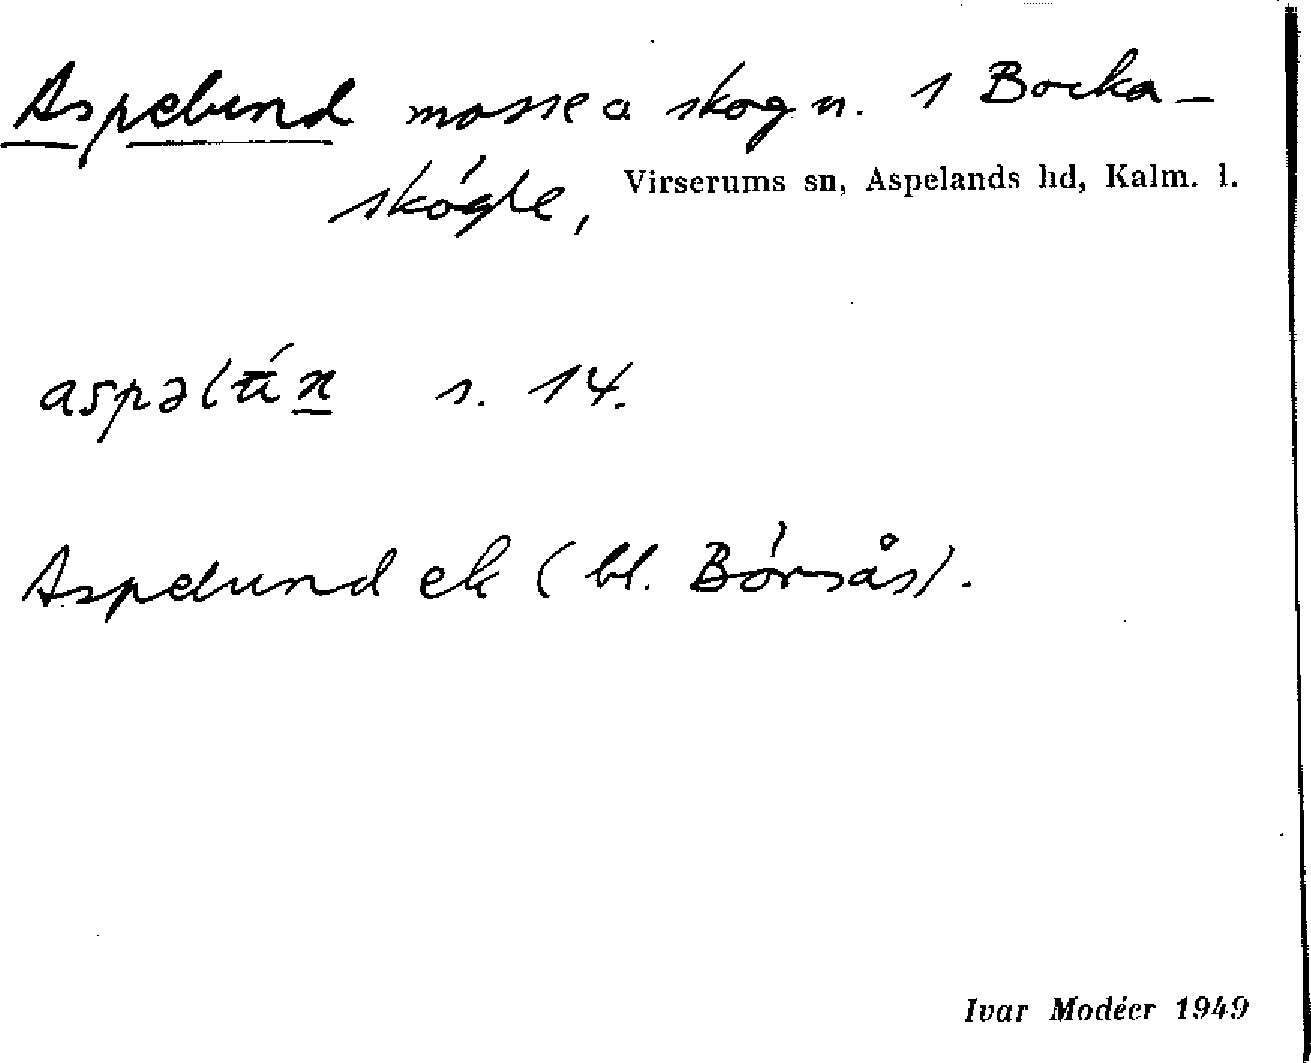 Aspelund mosse o skog n. s Bocka-
skógle, Virserums sn, Aspelands hd, Kalm. l.
s. 14.
Aspelund ek (bl. Bórsås).
Ivar Modéer 1949